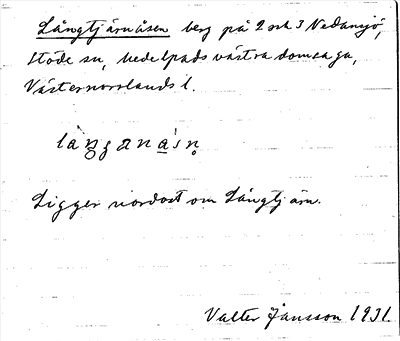 Långtjärnåsen berg på 2 och 3 Nedansjö,
Stöde sn, Medelpads västra domsaga,
Västernorrlands l.
Ligger nordost om Långtjärn.
Valter Jansson 1931.